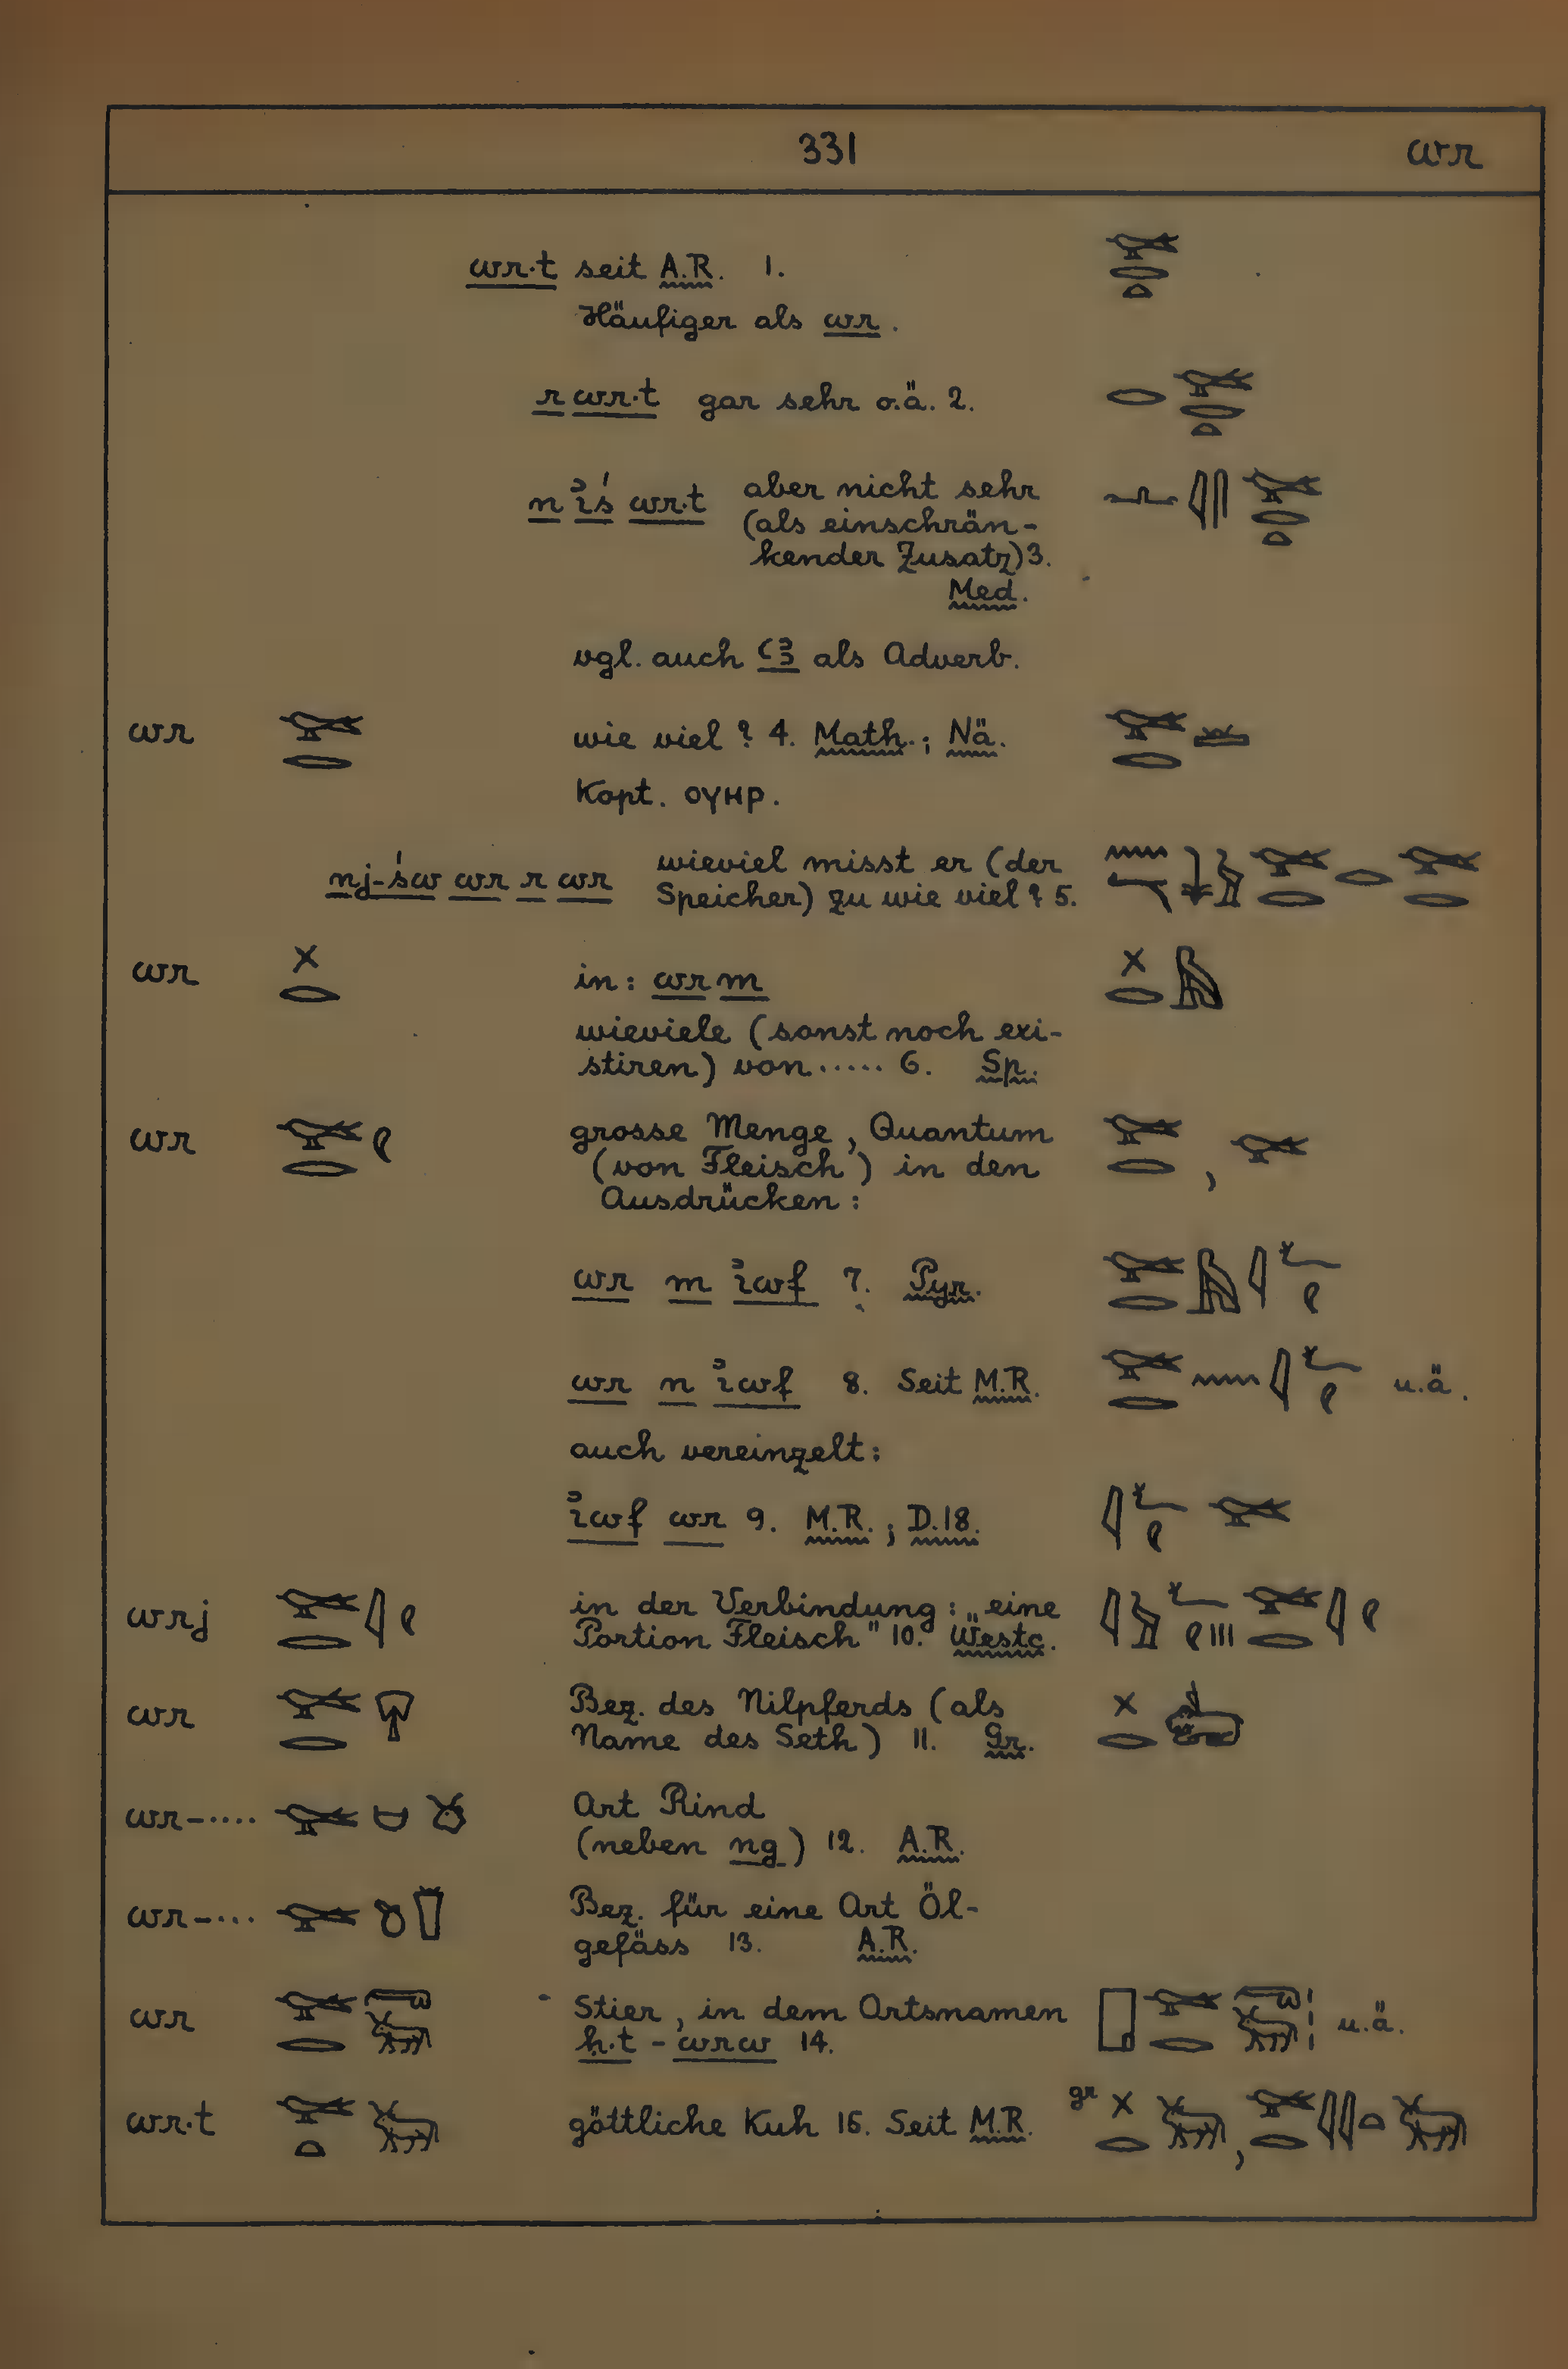 331 wr
wr·t seit A.R. 1.
Häufiger als wr.
r wr·t gar sehr o.ä. 2.
n ꞽś wr·t aber nicht sehr
(als einschrän-
kender Zusatz) 3.
Med.
vgl. auch ꜥꜣ als Adverb.
wr wie viel? 4. Math.; Nä.
Kopt. ⲟⲩⲏⲣ.
nj-św wr r wr wieviel misst er (der
Speicher) zu wie viel? 5.
wr in: wr m
wieviele (sonst noch exi-
stiren) von ..... 6. Sp.
wr grosse Menge, Quantum
(von Fleisch) in den
Ausdrücken:
wr m ꞽwf 7. Pyr.
wr n ꞽwf 8. Seit M.R. u.ä.
auch vereinzelt:
ꞽwf wr 9. M.R.; D.18.
wrj in der Verbindung: „eine
Portion Fleisch" 10. Westc.
wr Bez. des Nilpferds (als
Name des Seth) 11. Gr.
wr-.... Art Rind
(neben ng) 12. A.R.
wr-... Bez. für eine Art Öl-
gefäss 13. A.R.
wr Stier, in dem Ortsnamen u.ä.
ḥ·t - wrw 14.
wr·t göttliche Kuh 15. Seit M.R. gr